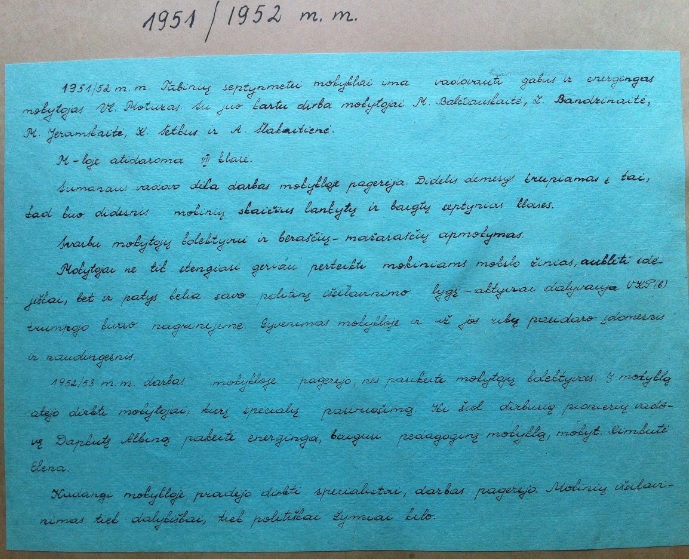 1951/1952 m. m.
1951/52 m. m. Tubinių septynmetei mokyklai ima vadovauti gabus ir energingas
mokytojas Vl. Moturas. Su juo kartu dirba mokytojai M. Ž. Bandzinaitė,
M. K. ir A.
M-loje atidaroma VII klasė.
Sumanaus vadovo dėka darbas mokykloje pagerėja. Didelis dėmesys kreipiamas į tai,
kad kuo didesnis mokinių skaičius lankytų ir baigtų septynias klases.
Svarbu mokytojų kolektyvui ir beraščių-mažaraščių apmokymas.
Mokytojai ne tik stengiasi geriau perteikti mokiniams mokslo žinias, auklėti idė-
jiškai, bet ir patys kelia savo politinį išsilavinimo lygį - aktyviai dalyvauja VKP(b)
trumpojo kurso nagrinėjime. Gyvenimas mokykloje ir už jos ribų pasidaro įdomesnis
ir naudingesnis.
1952/53 m. m. darbas mokykloje pagerėjo, nes pasikeitė mokytojų kolektyvas. Į mokyklą
atėjo dirbti mokytojai, kurį specialų pasiruošimą. Iki šiol dirbusią pionierių vado-
vę Dapkutę Albiną pakeitė energinga, baigusi pedagoginę mokyklą, mokyt. Rimkutė
Elena.
Kadangi mokykloje pradėjo dirbti specialistai, darbas pagerėjo. Mokinių išsilavi-
nimas tiek dalykiškai, tiek politiškai žymiai kilo.